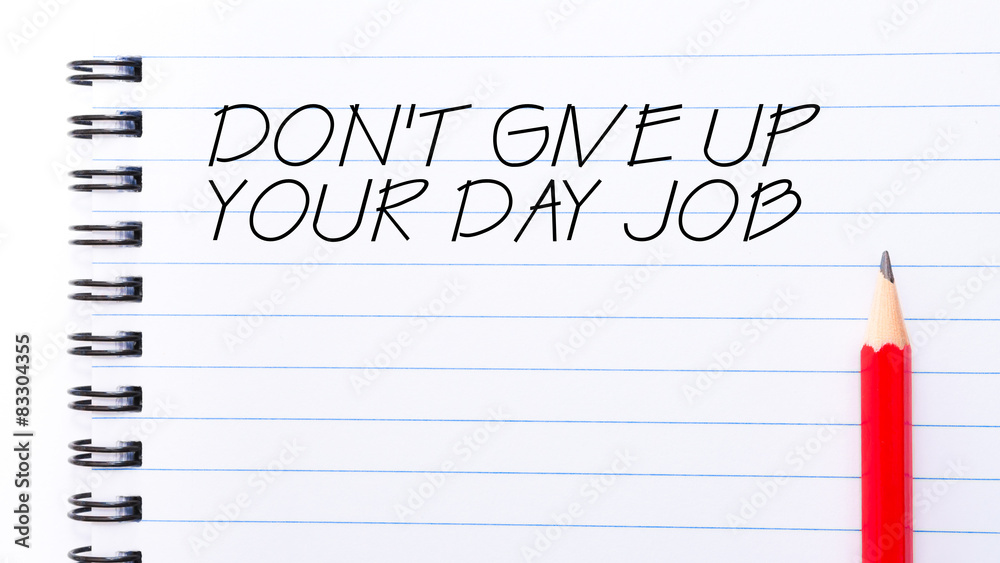 DON'T GIVE UP
YOUR DAY JOB
Adobe Stock | #83304355